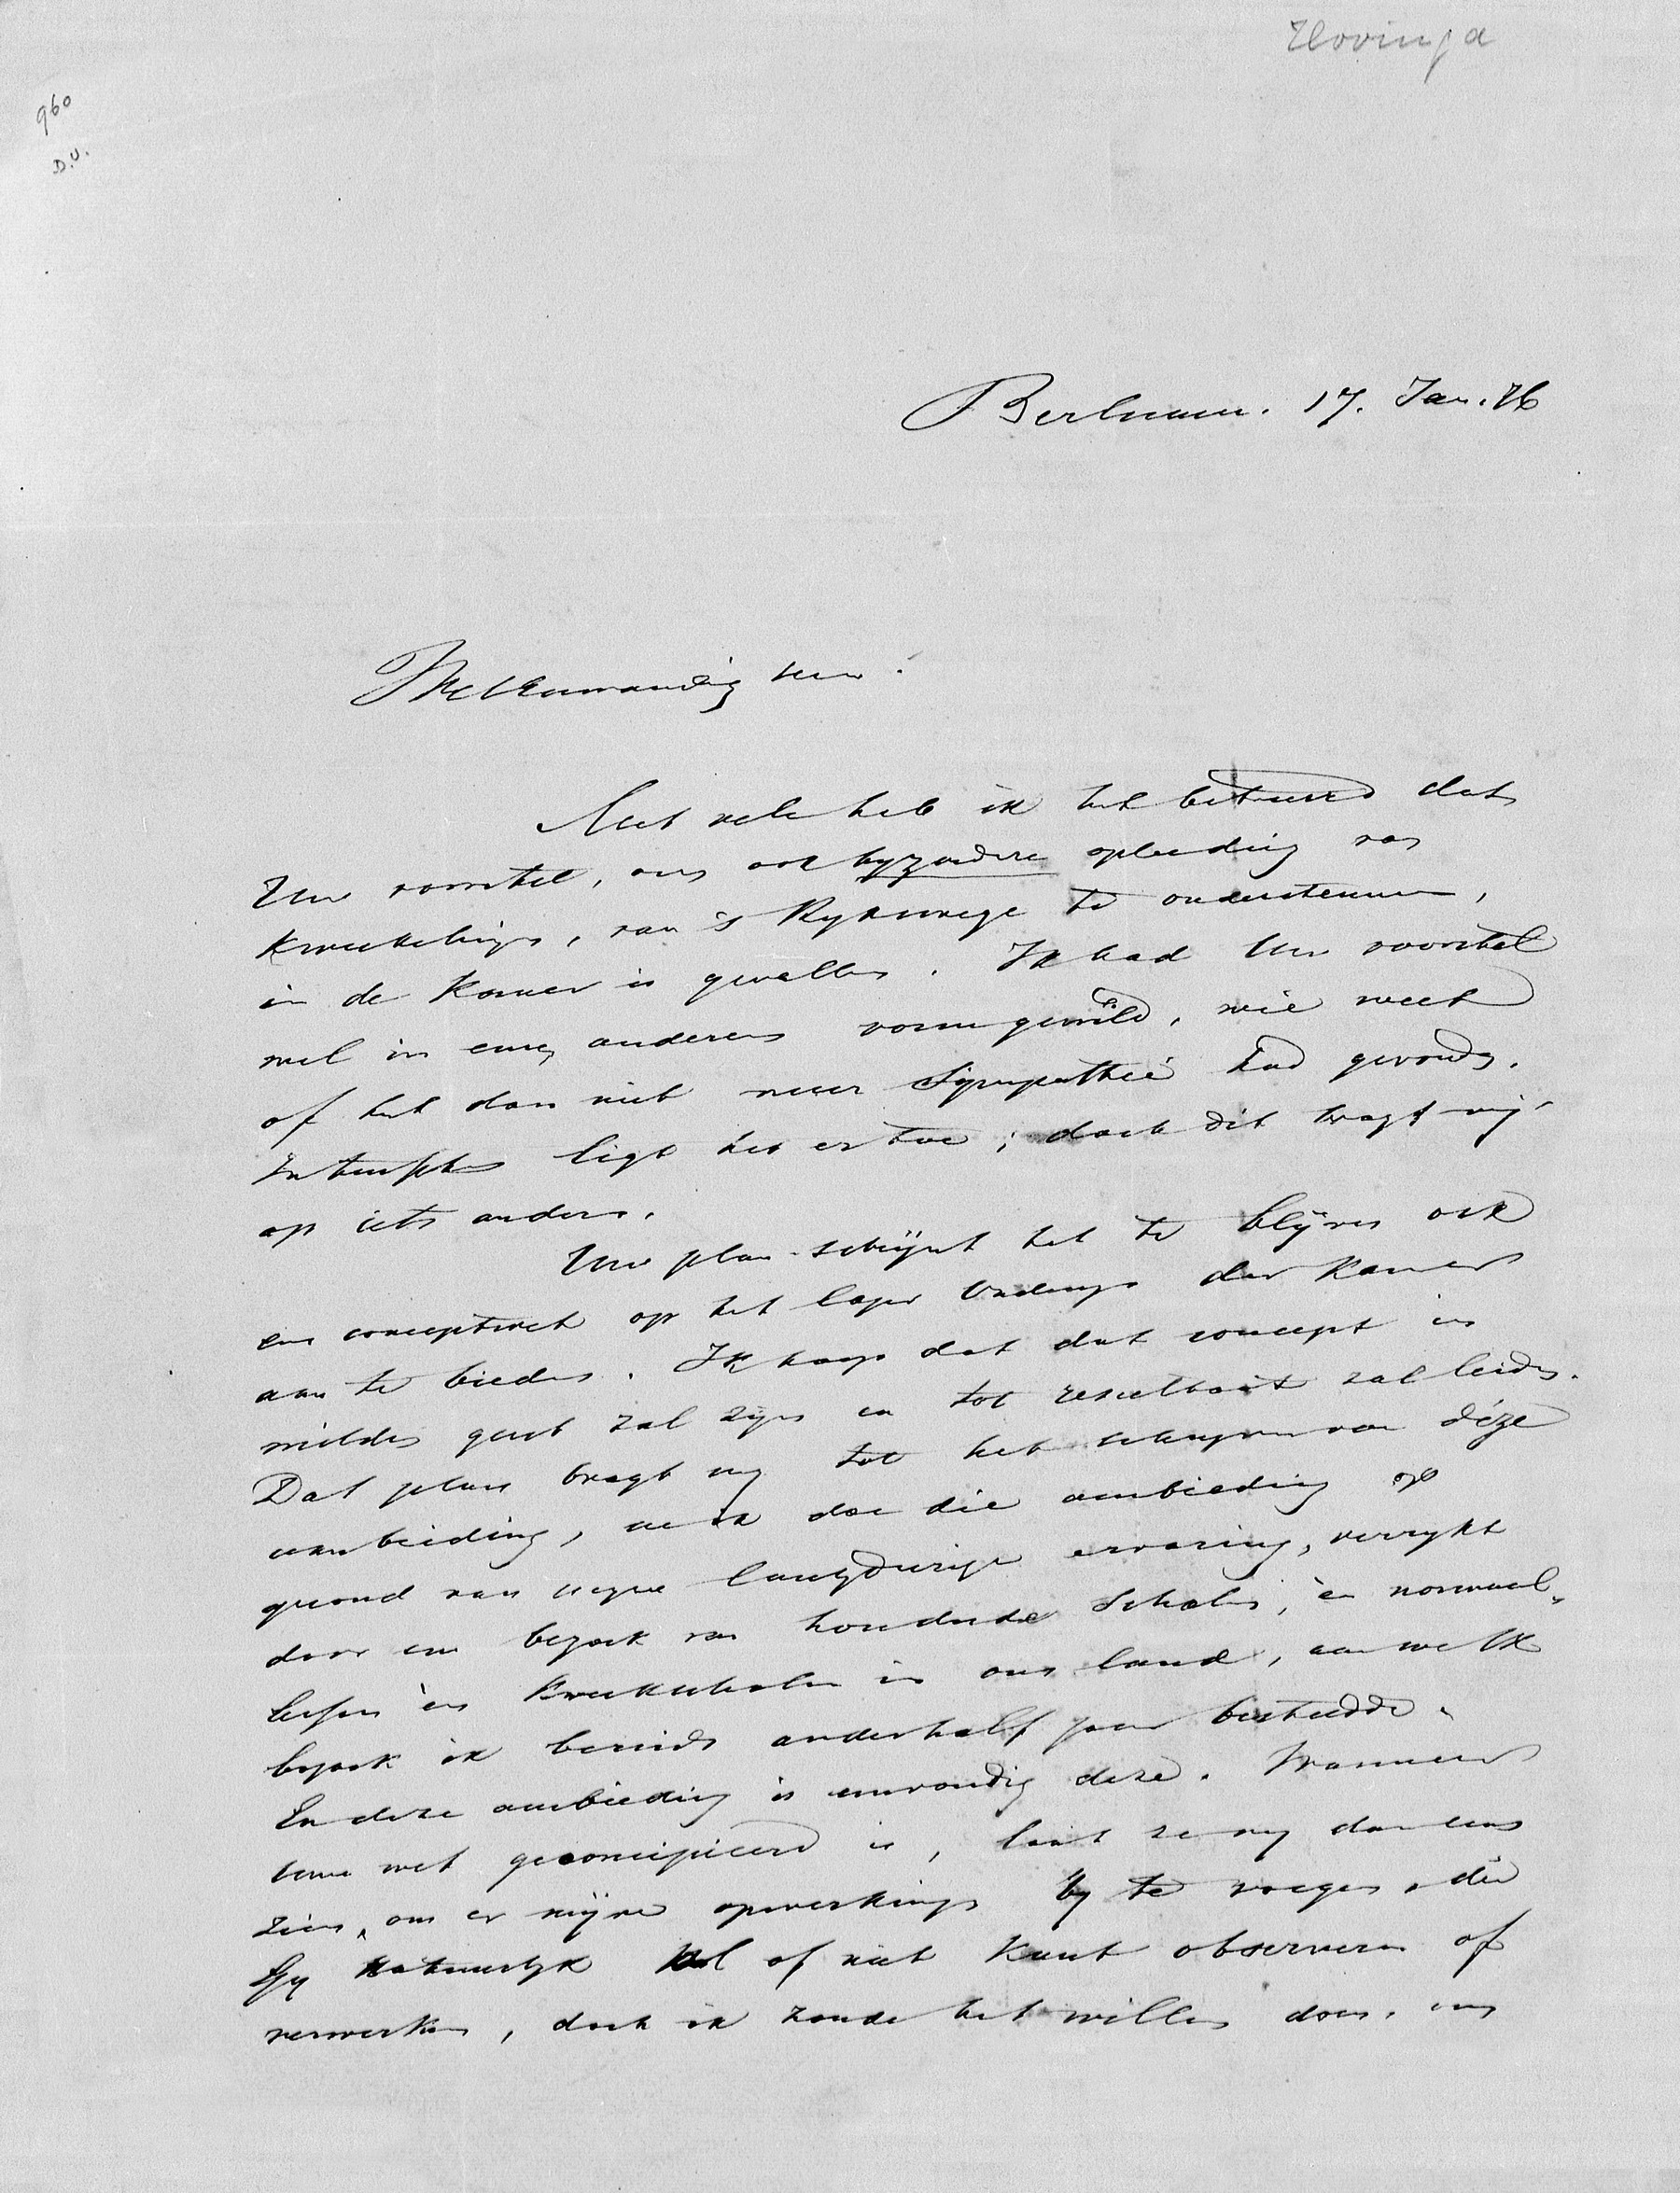 Hovinga
960
D.U.
Berlicum. 17. Jan. 76
Weleerwaardig heer.
Met vele heb ik het betreurd dat
Uw voorstel, om ook byzondere opleiding van
kweekelingen, van 's Rykswege te ondersteunen,
in de Kamer is gevallen. Ik had Uw voorstel
wel in een anderen vorm gewild, wie weet
of het dan niet meer Sympathie had gevonden.
Intusschen ligt het er toe; doch dit brengt mij
op iets anders.
Uw plan schijnt het te blijven ook
een conceptwet op het lager Onderwys der Kamer
aan te bieden. Ik hoop dat dat concept in
milden geest zal zijn en tot resultaat zal leiden.
Dat plan bragt my tot het schryven van déze
aanbieding, en ik doe die aanbieding op
grond van myne langdurige ervaring, verrykt
door een bezoek van honderde Scholen, èn normaal-
lessen èn Kweekscholen in ons land, aan welk
bezoek ik bereids anderhalf jaar besteedde.
En deze aanbieding is eenvoudig deze. Wanneer
Uwe wet geconcipieerd is, laat ze my dan eens
zien, om er mijne opmerkingen by te voegen, die
Gy natuurlyk wel of niet kunt observeren of
verwerken, doch ik zoude het willen doen, om